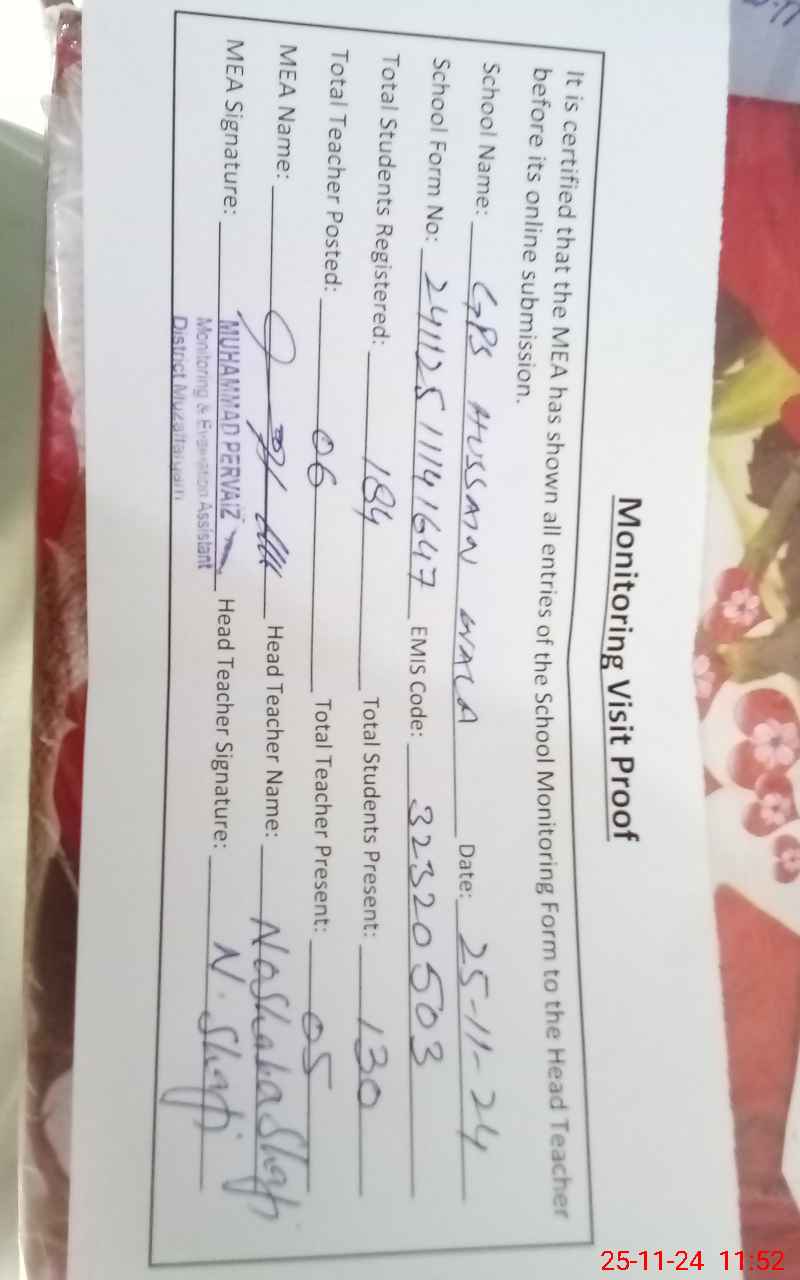 Monitoring Visit Proof
It is certified that the MEA has shown all entries of the School Monitoring Form to the Head Teacher
before its online submission.
School Name: GPS HUSSAIN WALA Date: 25-11-24
School Form No: 24112511141647 EMIS Code: 32320503
Total Students Registered: 184 Total Students Present: 130
Total Teacher Posted: 06 Total Teacher Present: 05
MEA Name: Head Teacher Name: Noshaba Shafi
MEA Signature: MUHAMMAD PERVAIZ Head Teacher Signature: N. Shafi
Monitoring & Evaluation Assistant
District Muzaffargarh
25-11-24 11:52